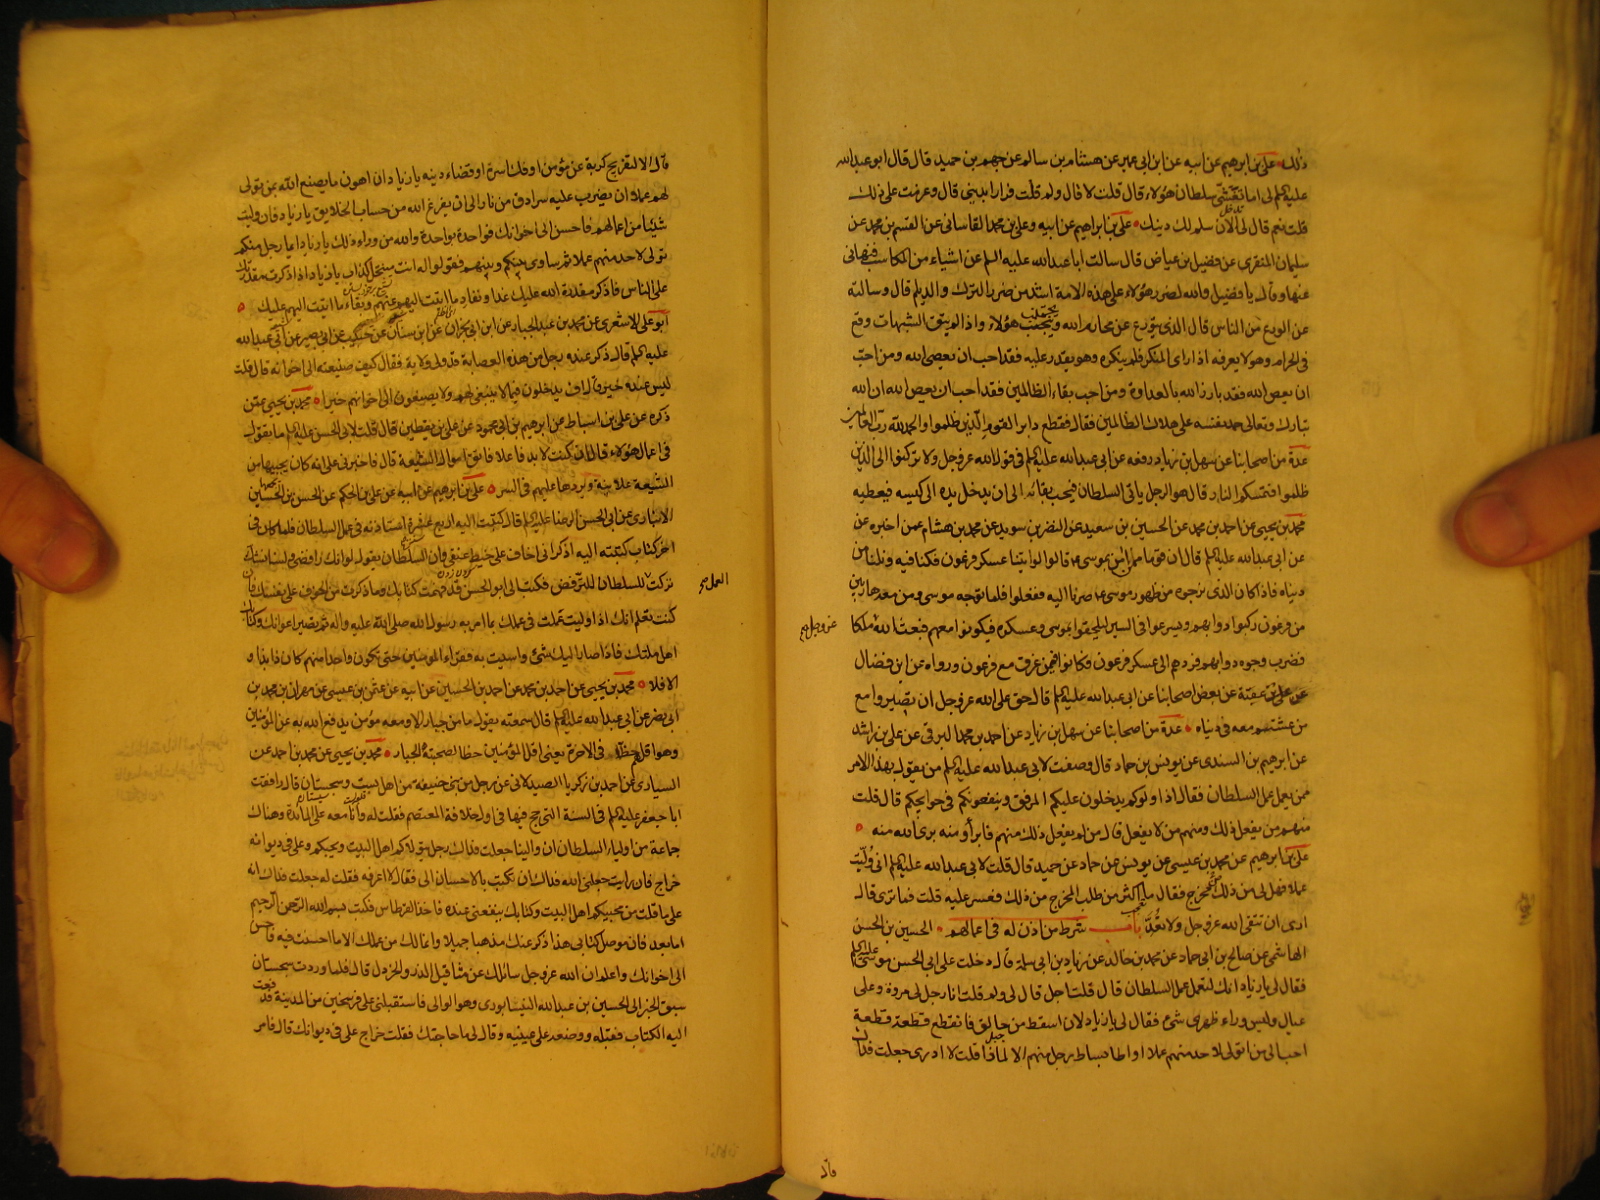 ذلك علي بن ابرهيم عن ابيه عن ابن ابي عمير عن هشام بن سالم عن جهم بن حميد قال قال ابو عبد الله
عليه السلم لي اما تغشى سلطان هؤلاء قال قلت لا قال ولم قلت فرارا بديني قال وعزمت على ذلك
قلت نعم قال لي الان سلم لك دينك علي بن ابراهيم عن ابيه وعلي بن محمد القاساني عن القسم بن محمد عن
سليمان المنقري عن فضيل بن عياض قال سالت ابا عبد الله عليه السلم عن اشياء من المكاسب فنهاني
عنها وقال يا فضيل والله لضرر هؤلاء على هذه الامة اشد من ضرر الترك والديلم قال وسالته
عن الورع من الناس قال الذي يتورع عن محارم الله ويجتنب هؤلاء واذا لم يتق الشبهات وقع
في الحرام وهو لا يعرفه اذا راى المنكر فلم ينكره وهو يقدر عليه فقد احب ان يعصى الله ومن احب
ان يعصى الله فقد بارز الله بالعداوة ومن احب بقاء الظالمين فقد احب ان يعصى الله ان الله
تبارك وتعالى حمد نفسه على هلاك الظالمين فقال فقطع دابر القوم الذين ظلموا والحمد لله رب العالمين
عدة من اصحابنا عن سهل بن زياد رفعه عن ابي عبد الله عليه السلم في قول الله عز وجل ولا تركنوا الى الذين
ظلموا فتمسكم النار قال هو الرجل ياتي السلطان فيحب بقائه الى ان يدخل يده الى كيسه فيعطيه
محمد بن يحيى عن احمد بن محمد عن الحسين بن سعيد عن النضر بن سويد عن محمد بن هشام عمن اخبره عن
عن ابي عبد الله عليه السلم قال ان قوما ممن امن بموسى ع قالوا لو اتينا عسكر فرعون فكنا فيه ونلنا من
دنياه فاذا كان الذي نرجوه من ظهور موسى ع صرنا اليه ففعلوا فلما توجه موسى ومن معه هاربين
من فرعون ركبوا دوابهم ويسرعوا في السير ليلحقوا بموسى وعسكره فيكونوا معهم فبعث الله ملكا
عز وجل صح
فضرب وجوه دوابهم فردهم الى عسكر فرعون فكانوا فيمن غرق مع فرعون ورواه عن ابن فضال
عن علي بن عقبة عن بعض اصحابنا عن ابي عبد الله عليه السلم قال حق على الله عز وجل ان تصيروا مع
من عشتم معه في دنياه عدة من اصحابنا عن سهل بن زياد عن احمد بن محمد البرقي عن علي بن راشد
عن ابرهيم بن السندي عن يونس بن حماد قال وصفت لابي عبد الله عليه السلم من يقول بهذا الامر
ممن يعمل عمل السلطان فقال اذا ولوكم يدخلون عليكم المرفق وينفعونكم في حوايجكم قال قلت
منهم من يفعل ذلك ومنهم من لا يفعل قال من لم يفعل ذلك منهم فابرأو منه برى الله منه
علي بن ابرهيم عن محمد بن عيسى عن يونس عن حماد عن حميد قال قلت لابي عبد الله عليه السلم اني وليت
عملا فهل لي من ذلك مخرج فقال ما اكثر من طلب المخرج من ذلك فعسر عليه قلت فما ترى قال
ارى ان تتقي الله عز وجل ولا تعد باب شرط من اذن له في اعمالهم الحسين بن الحسن
الهاشمي عن صالح بن ابي حماد عن محمد بن خالد عن زياد بن ابي سلمة قال دخلت على ابي الحسن موسى عليه السلم
فقال لي يا زياد انك لتعمل عمل السلطان قال قلت اجل قال لي ولم قلت انا رجل لي مروة وعلى
عيال وليس وراء ظهري شيء فقال لي يا زياد لان اسقط من حالق فاتقطع قطعة قطعة
احب الي من اتولى لاحد منهم عملا او اطا بساط رجل منهم الا لماذا قلت لا ادري جعلت فداك
قال
قال الا لتفريج كربة عن مؤمن او فك اسره او قضاء دينه يا زياد ان اهون ما يصنع الله بمن تولى
لهم عملا ان يضرب عليه سرادق من نار الى ان يفرغ الله من حساب الخلايق يا زياد فان وليت
شيئا من اعمالهم فاحسن الى اخوانك فواحدة بواحدة والله من وراء ذلك يا زياد ايما رجل منكم
تولى لاحد منهم عملا ثم ساوى بينكم وبينهم فقولوا له انت منتحل كذاب يا زياد اذا ذكرت مقدرتك
على الناس فاذكر مقدرة الله عليك غدا ونفاد ما اتيت اليهم عنهم وبقاء ما اتيت اليهم عليك
ابو علي الاشعري عن محمد بن عبد الجبار عن ابن ابي نجران عن ابن سنان عن حبيب عن ابي بصير عن ابي عبد الله
عليه السلم قال ذكر عنده رجل من هذه العصابة قد ولى ولاية فقال كيف صنيعته الى اخوانه قال قلت
ليس عنده خير قال اف يدخلون فيما لا ينبغي لهم ولا يصنعون الى اخوانهم خيرا محمد بن يحيى عمن
ذكره عن علي بن اسباط عن ابرهيم بن ابي محمود عن علي بن يقطين قال قلت لابي الحسن عليه السلم ما تقول
في اعمال هؤلاء قال ان كنت لا بد فاعلا فاتق اموال الشيعة قال فاخبرني علي انه كان يجبيها من
الشيعة علانية ويردها عليهم في السر علي بن ابرهيم عن ابيه عن علي بن الحكم عن الحسن بن الحسين
الانباري عن ابي الحسن الرضا عليه السلم قال كتبت اليه اربع عشرة سنة استاذنه في عمل السلطان فلما كان في
اخر كتاب كتبته اليه اذكر اني اخاف على خيط عنقي وان السلطان يقول لي انك رافضي ولسنا نشك
العمل صح
تركت للسلطان للترفض فكتب الي ابو الحسن قد فهمت كتابك وما ذكرت من الخوف على نفسك فان
كنت تعلم انك اذا وليت عملت في عملك بما امر به رسول الله صلى الله عليه واله ثم تصير اعوانك وكتابك
اهل ملتك فاذا صار اليك شئ واسيت به فقراء المومنين حتى تكون واحدا منهم كان ذا بذا و
الا فلا محمد بن يحيى عن احمد بن محمد عن احمد بن الحسين عن ابيه عن عثمن بن عيسى عن مهران بن محمد بن
ابي نصر عن ابي عبد الله عليه السلم قال سمعته يقول ما من جبار الا ومعه مؤمن يدفع الله به عن المؤمنين
وهو اقلهم حظا في الاخرة يعني اقل المؤمنين حظا لصحبة الجبار محمد بن يحيى عن محمد بن احمد عن
السياري عن احمد بن زكريا الصيدلاني عن رجل من بني حنيفة من اهل بست وسجستان قال رافقت
ابا جعفر عليه السلم في السنة التي حج فيها في اول خلافة المعتصم فقلت له وانا معه على المائدة وهناك
جماعة من اولياء السلطان ان والينا جعلت فداك رجل يتولاكم اهل البيت ويحبكم وعلي في ديوانه
خراج فان رايت جعلني الله فداك ان تكتب بالاحسان الي فقال لا اعرفه فقلت له جعلت فداك انه
على ما قلت من محبيكم اهل البيت وكتابك ينفعني عنده فاخذ القرطاس فكتب بسم الله الرحمن الرحيم
اما بعد فان موصل كتابي هذا ذكر عنك مذهبا جميلا وانما لك من عملك الا ما احسنت فيه فاحسن
الى اخوانك واعلم ان الله عز وجل سائلك عن مثاقيل الذر والخردل قال فلما وردت سجستان
سبق الخبر الى الحسين بن عبد الله النيسابوري وهو الوالي فاستقبلني على فرسخين من المدينة فدفعت
اليه الكتاب فقبله ووضعه على عينيه وقال لي ما حاجتك فقلت خراج علي في ديوانك قال فامر